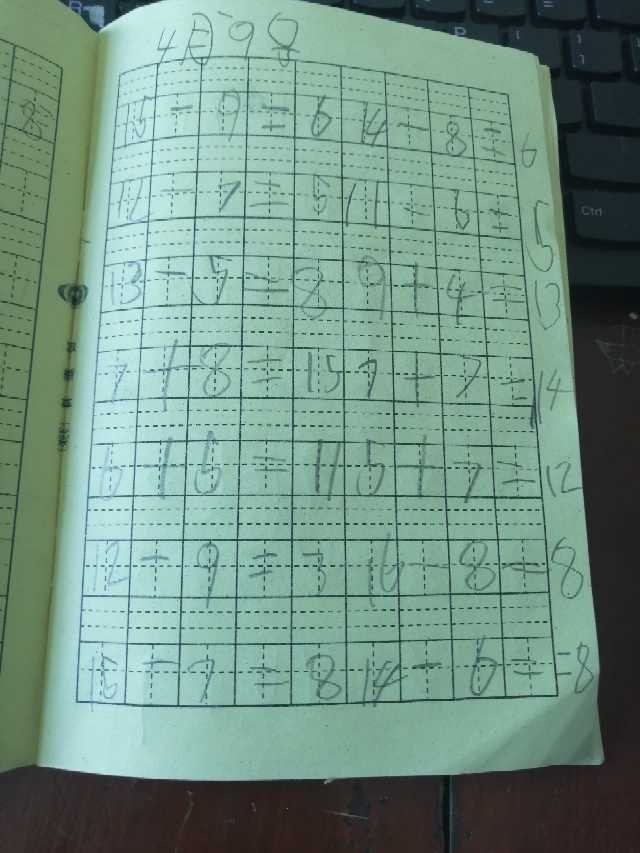 4月9日
15-9=6 14-8=6
12-7=5 11-6=5
13-5=8 9+4=13
7+8=15 7+7=14
6+5=11 5+7=12
12-9=3 16-8=8
15-7=8 14-6==8
Ctrl